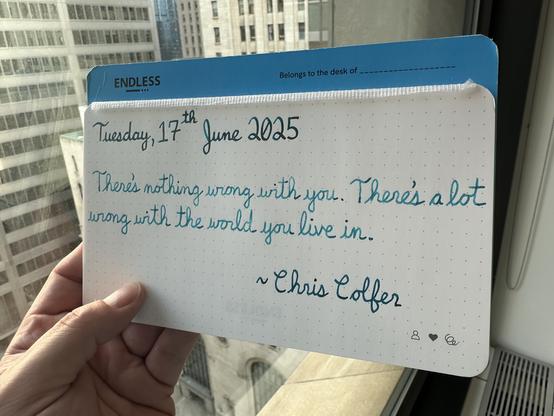 ENDLESS
Belongs to the desk of
Tuesday, 17th June 2025
There's nothing wrong with you. There's a lot
wrong with the world you live in.
~ Chris Colfer